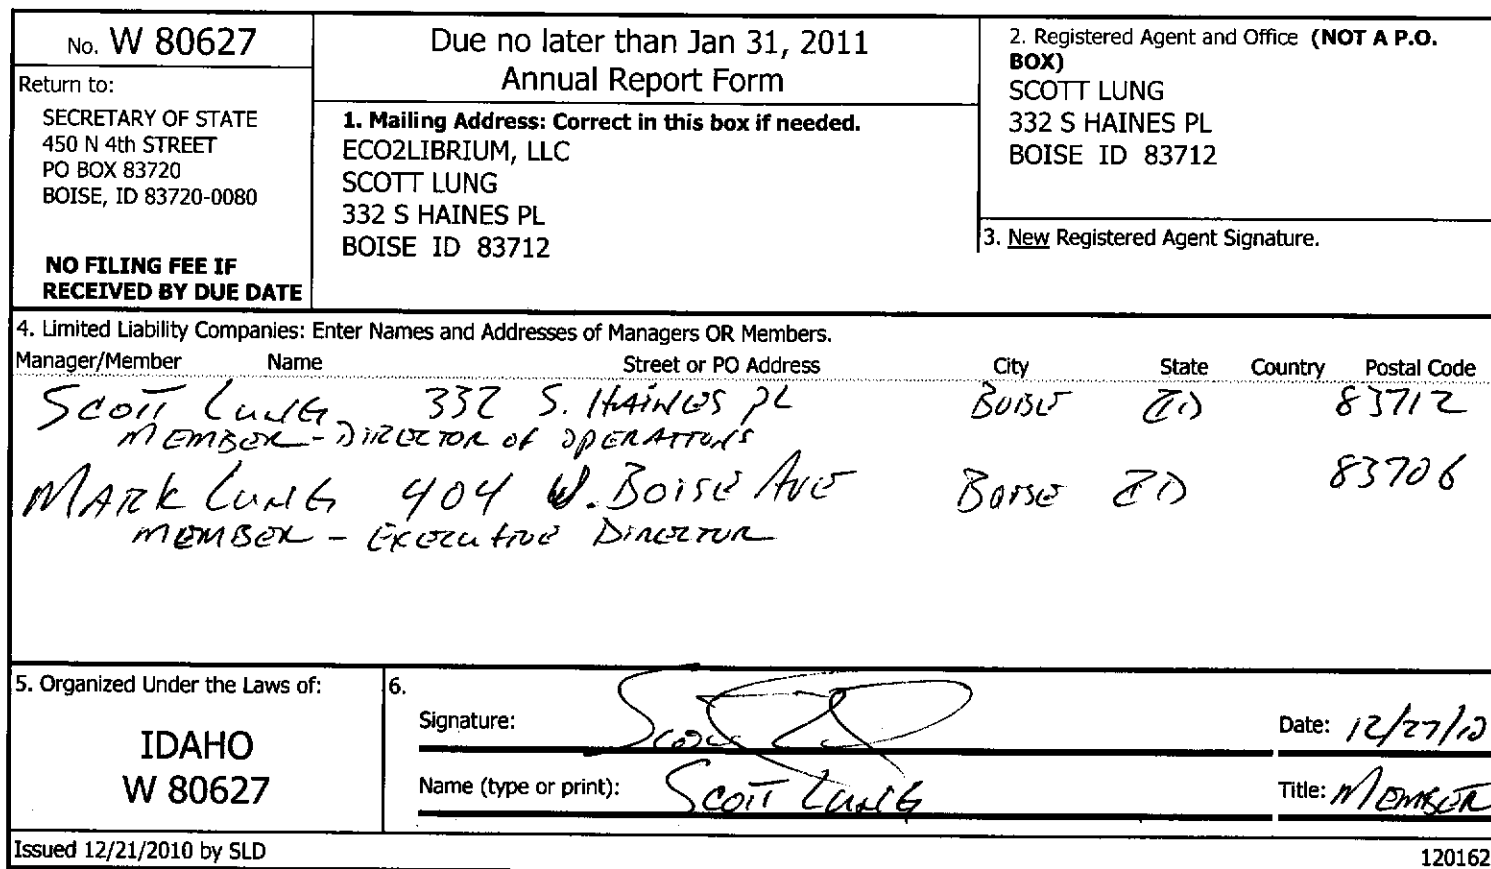 No. W 80627
Return to:
SECRETARY OF STATE
450 N 4th STREET
PO BOX 83720
BOISE, ID 83720-0080
NO FILING FEE IF
RECEIVED BY DUE DATE
Due no later than Jan 31, 2011
Annual Report Form
1. Mailing Address: Correct in this box if needed.
ECO2LIBRIUM, LLC
SCOTT LUNG
332 S HAINES PL
BOISE ID 83712
2. Registered Agent and Office (NOT A P.O.
BOX)
SCOTT LUNG
332 S HAINES PL
BOISE ID 83712
3. New Registered Agent Signature.
4. Limited Liability Companies: Enter Names and Addresses of Managers OR Members.
Manager/Member Name Street or PO Address City State Country Postal Code
SCOTT LUNG 332 S. HAINES PL BOISE ID 83712
MEMBER - DIRECTOR OF OPERATIONS
MARK LUNG 404 W. BOISE AVE BOISE ID 83706
MEMBER - EXECUTIVE DIRECTOR
5. Organized Under the Laws of:
IDAHO
W 80627
6.
Signature: Scott
Date: 12/27/10
Name (type or print): SCOTT LUNG
Title: MEMBER
Issued 12/21/2010 by SLD
120162